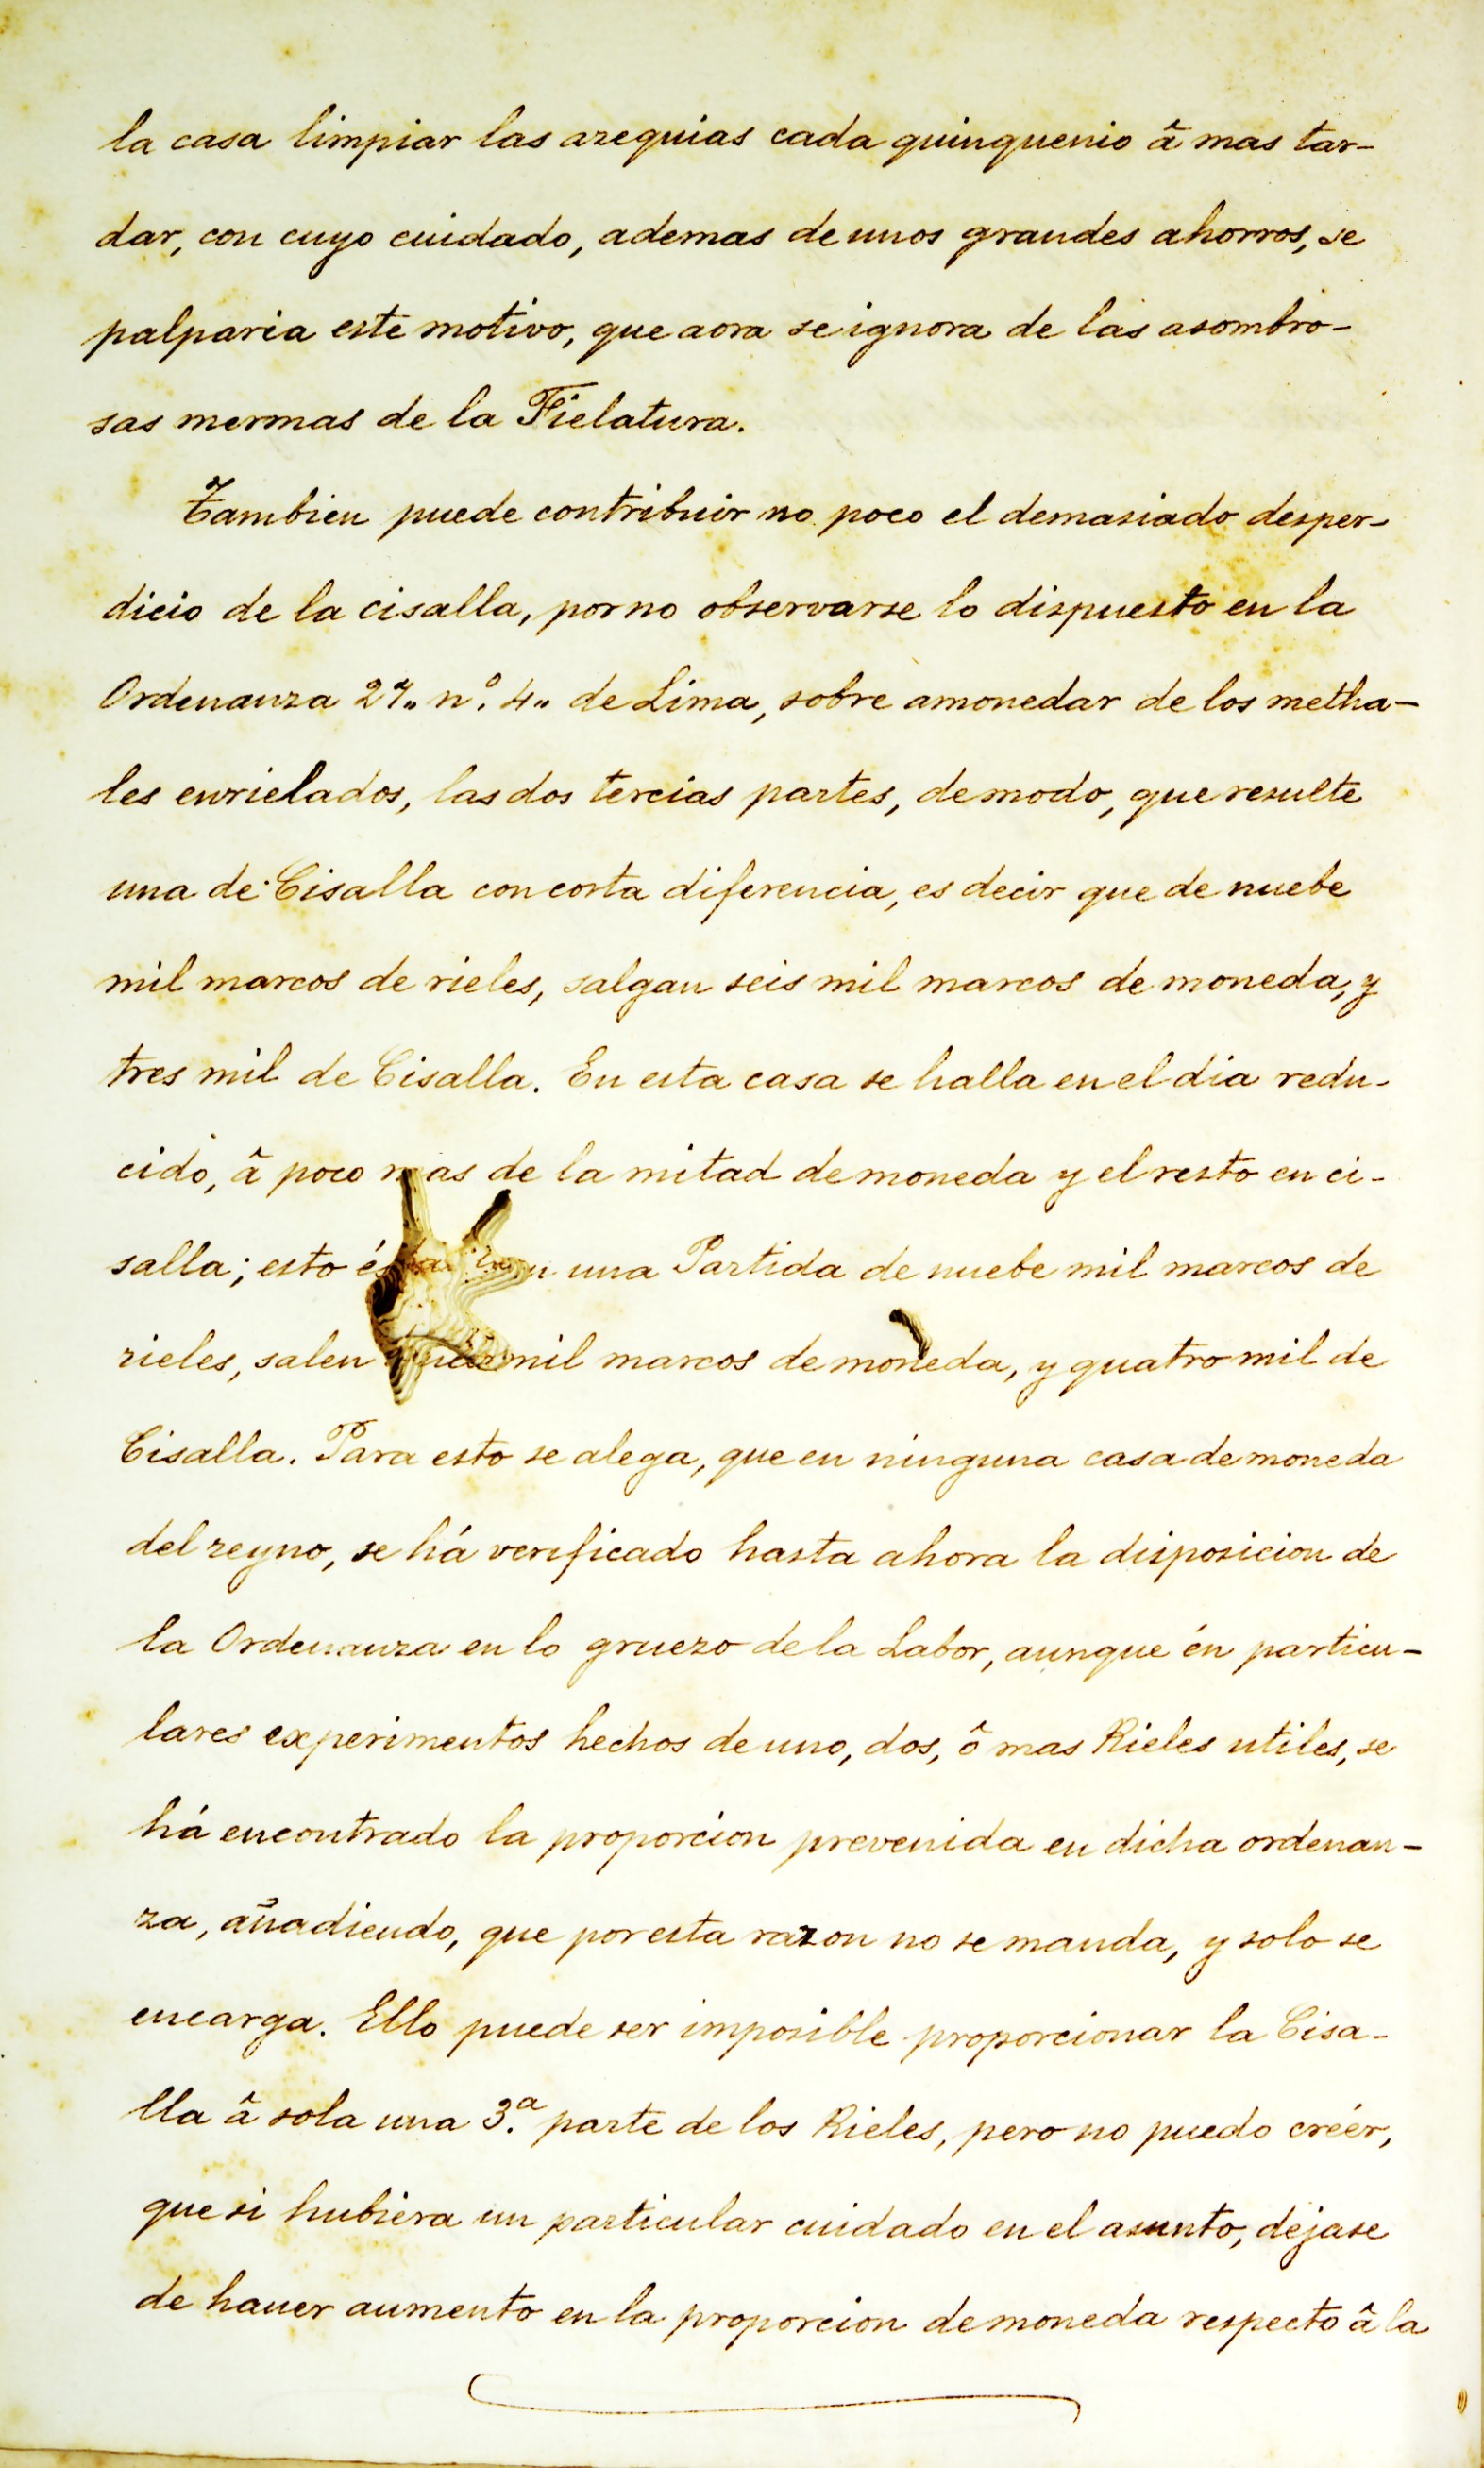 la casa limpiar las azequias cada quinquenio â mas tar-
dar, con cuyo cuidado, ademas de unos grandes ahorros, se
palparia este motivo, que aora se ignora de las asombro-
sas mermas de la Fielatura.
Tambien puede contribuir no poco el demasiado desper-
dicio de la cisalla, por no observarse lo dispuesto en la
Ordenanza 27" nº. 4" de Lima, sobre amonedar de los metha-
les enrielados, las dos tercias partes, de modo, que resulte
una de Cisalla con corta diferencia, es decir que de nuebe
mil marcos de rieles, salgan seis mil marcos de moneda, y
tres mil de Cisalla. En esta casa se halla en el dia redu-
cido, â poco mas de la mitad de moneda y el resto en ci-
salla; esto és una Partida de nuebe mil marcos de
rieles, salen mil marcos de moneda, y quatro mil de
Cisalla. Para esto se alega, que en ninguna casa de moneda
del reyno, se há verificado hasta ahora la disposicion de
la Ordenanza en lo gruezo de la Labor, aunque én particu-
lares experimentos hechos de uno, dos, ô mas Rieles utiles, se
há encontrado la proporcion prevenida en dicha ordenan-
za, añadiendo, que por esta razon no se manda, y solo se
encarga. Ello puede ser imposible proporcionar la Cisa-
lla â sola una 3.ª parte de los Rieles, pero no puedo créer,
que si hubiera un particular cuidado en el asunto, dejase
de hauer aumento en la proporcion de moneda respecto â la